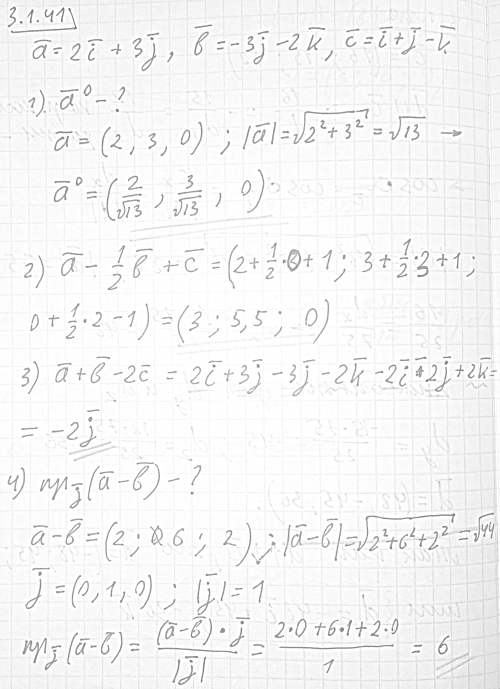 3.1.41)
a̅ = 2i̅ + 3j̅, b̅ = -3j̅ - 2k̅, c̅ = i̅ + j̅ - k̅
1) a̅⁰ - ?
a̅ = (2, 3, 0) ; |a̅| = √(2² + 3²) = √13 →
a̅⁰ = (2/√13, 3/√13, 0)
2) a̅ - 1/2 b̅ + c̅ = (2 + 1/2·0 + 1 ; 3 + 1/2·3 + 1 ;
0 + 1/2·2 - 1) = (3 ; 5,5 ; 0)
3) a̅ + b̅ - 2c̅ = 2i̅ + 3j̅ - 3j̅ - 2k̅ - 2i̅ - 2j̅ + 2k̅ =
= -2j̅
4) пр_j̅ (a̅ - b̅) - ?
a̅ - b̅ = (2 ; 6 ; 2) ; |a̅ - b̅| = √(2² + 6² + 2²) = √44
j̅ = (0, 1, 0) ; |j̅| = 1
пр_j̅ (a̅ - b̅) = (a̅ - b̅)·j̅ / |j̅| = (2·0 + 6·1 + 2·0) / 1 = 6